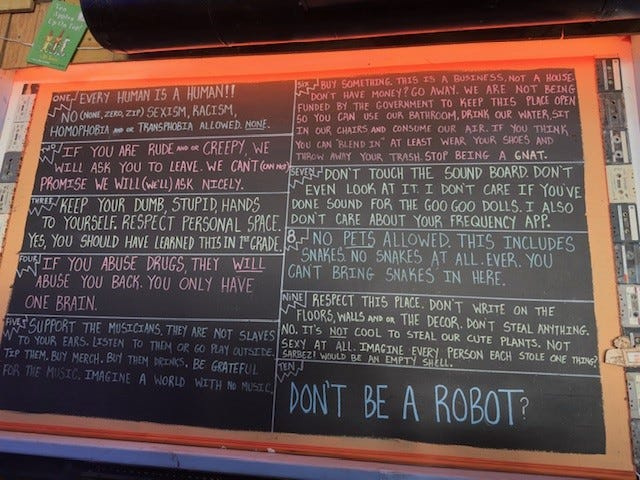 Ten Apples Up On Top!
ONE, EVERY HUMAN IS A HUMAN!!
NO (NONE, ZERO, ZIP) SEXISM, RACISM,
HOMOPHOBIA AND OR TRANSPHOBIA ALLOWED. NONE.
TWO IF YOU ARE RUDE AND OR CREEPY, WE
WILL ASK YOU TO LEAVE. WE CAN'T (CAN NOT)
PROMISE WE WILL (WE'LL) ASK NICELY.
THREE, KEEP YOUR DUMB, STUPID, HANDS
TO YOURSELF. RESPECT PERSONAL SPACE.
YES, YOU SHOULD HAVE LEARNED THIS IN 1ST GRADE.
FOUR IF YOU ABUSE DRUGS, THEY WILL
ABUSE YOU BACK. YOU ONLY HAVE
ONE BRAIN.
FIVE, SUPPORT THE MUSICIANS. THEY ARE NOT SLAVES
TO YOUR EARS. LISTEN TO THEM OR GO PLAY OUTSIDE.
TIP THEM. BUY MERCH. BUY THEM DRINKS. BE GRATEFUL
FOR THE MUSIC. IMAGINE A WORLD WITH NO MUSIC.
SIX, BUY SOMETHING. THIS IS A BUSINESS, NOT A HOUSE.
DON'T HAVE MONEY? GO AWAY. WE ARE NOT BEING
FUNDED BY THE GOVERNMENT TO KEEP THIS PLACE OPEN
SO YOU CAN USE OUR BATHROOM, DRINK OUR WATER, SIT
IN OUR CHAIRS AND CONSUME OUR AIR. IF YOU THINK
YOU CAN "BLEND IN" AT LEAST WEAR YOUR SHOES AND
THROW AWAY YOUR TRASH. STOP BEING A GNAT.
SEVEN, DON'T TOUCH THE SOUND BOARD. DON'T
EVEN LOOK AT IT. I DON'T CARE IF YOU'VE
DONE SOUND FOR THE GOO GOO DOLLS. I ALSO
DON'T CARE ABOUT YOUR FREQUENCY APP.
8, NO PETS ALLOWED. THIS INCLUDES
SNAKES. NO SNAKES AT ALL. EVER. YOU
CAN'T BRING SNAKES IN HERE.
NINE RESPECT THIS PLACE. DON'T WRITE ON THE
FLOORS, WALLS AND OR THE DECOR. DON'T STEAL ANYTHING.
NO. IT'S NOT COOL TO STEAL OUR CUTE PLANTS. NOT
SEXY AT ALL. IMAGINE EVERY PERSON EACH STOLE ONE THING?
SARBEZ! WOULD BE AN EMPTY SHELL.
TEN,
DON'T BE A ROBOT?